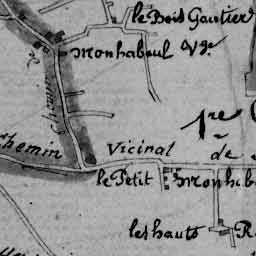 le Bois Gautier
Monhabeul Vge.
Chemin
1re
Chemin Vicinal de
le Petit Monhab
les hauts